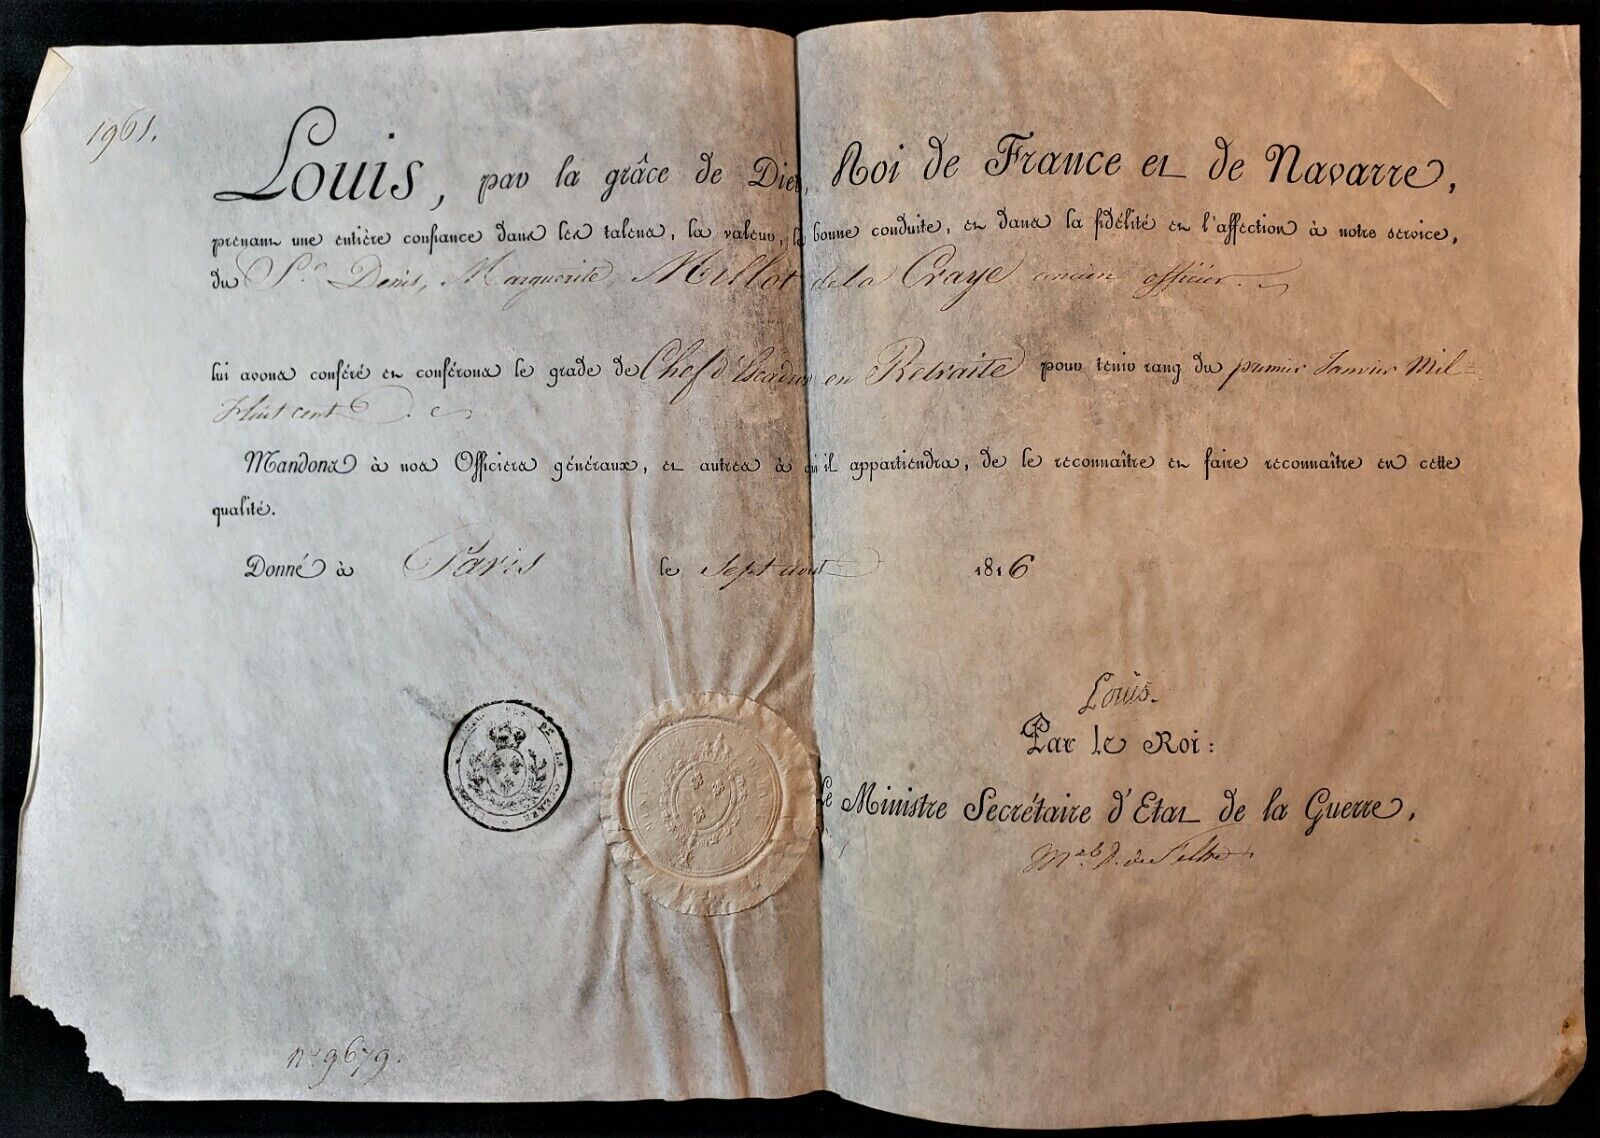 1961.
Louis, par la grâce de Dieu, Roi de France et de Navarre,
prenant une entière confiance dans les talens, la valeur, la bonne conduite, et dans la fidélité et l'affection à notre service,
du Sr. Denis, Marguerite, Millot de la Craye ancien officier.
lui avons conféré et conférons le grade de Chef d'Escadron en Retraite pour tenir rang du premier Janvier Mil
Huit cent
Mandons à nos Officiers généraux, et autres à qu'il appartiendra, de le reconnaître et faire reconnaître en cette
qualité.
Donné à Paris le Sept aout 1816
Louis.
Par le Roi :
Le Ministre Secrétaire d'Etat de la Guerre,
Mal D. de Feltre
DE LA GUERRE
n° 9679.